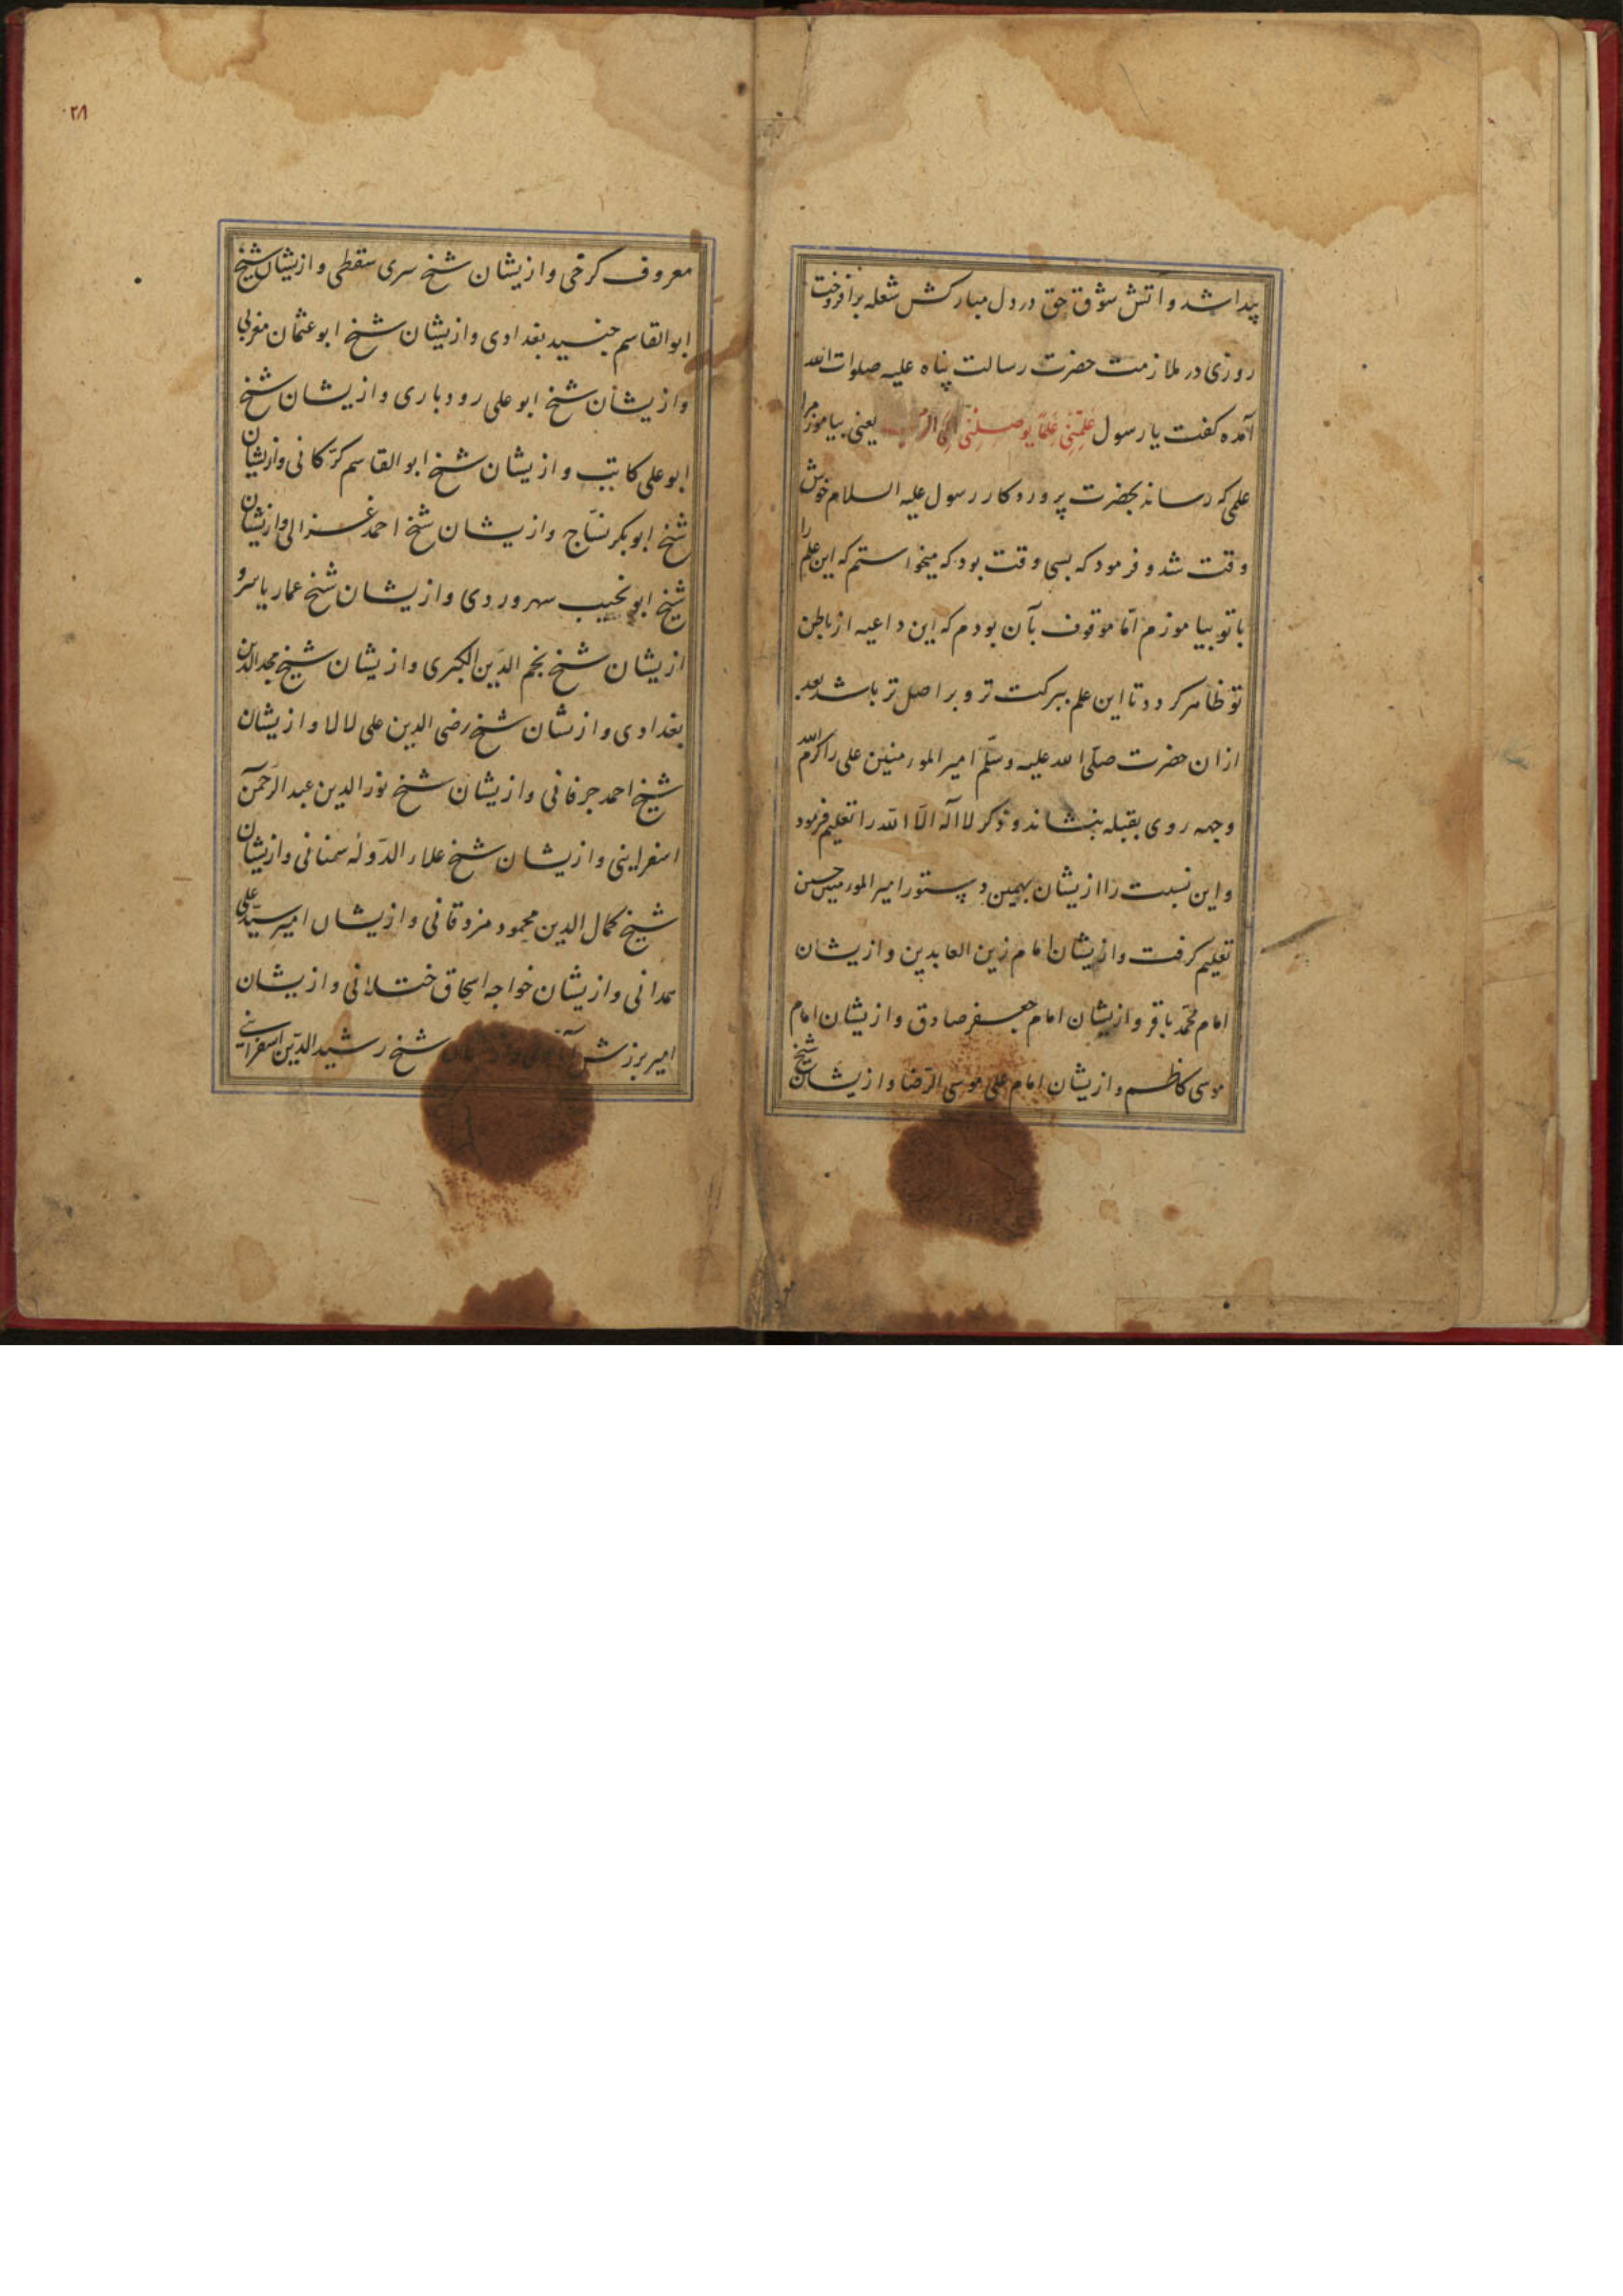 پیدا شد و آتش شوق حق در دل مبارکش شعله برافروخت
روزی در ملازمت حضرت رسالت پناه علیه صلوات الله
آمده کفت یا رسول عَلِّمْنِی عِلْمًا یُوصِلُنِی اِلَی یعنی بیاموز مرا
علمی که رساند بحضرت پروردکار رسول علیه السلام خوش
وقت شد و فرمود که بسی وقت بود که میخواستم که این علم را
با تو بیاموزم امّا موقوف بآن بودم که این داعیه از باطن
تو ظاهر کردد تا این علم ببرکت تر و بر اصل تر باشد بعد
ازان حضرت صلّی الله علیه وسلّم امیر المومنین علی را کرّم الله
وجهه روی بقبله بنشاند و ذکر لا اله الّا الله را تعلیم فرمود
و این نسبت را ازیشان بهمین دستور امیر المومنین حسین
تعلیم کرفت وازیشان امام زین العابدین وازیشان
امام محمّد باقر وازیشان امام جعفر صادق وازیشان امام
موسی کاظم وازیشان امام علی موسی الرّضا وازیشان شیخ
۲۸
معروف کرخی وازیشان شیخ سری سقطی وازیشان شیخ
ابوالقاسم جنید بغدادی وازیشان شیخ ابو عثمان مغربی
وازیشان شیخ ابو علی رودباری وازیشان شیخ
ابو علی کاتب وازیشان شیخ ابو القاسم کرّکانی وازیشان
شیخ ابوبکر نسّاج وازیشان شیخ احمد غزالی وازیشان
شیخ ابو نجیب سهروردی وازیشان شیخ عمار یاسر و
ازیشان شیخ نجم الدّین الکبری وازیشان شیخ مجد الدین
بغدادی وازیشان شیخ رضی الدین علی لالا وازیشان
شیخ احمد جرفانی وازیشان شیخ نور الدین عبد الرّحمن
اسفراینی وازیشان شیخ علاء الدّوله سمنانی وازیشان
شیخ کمال الدین محمود مزدقانی وازیشان امیر سیّد علی
همدانی وازیشان خواجه اسحاق ختلانی وازیشان
امیر برزش شیخ رشید الدّین اسفراینی